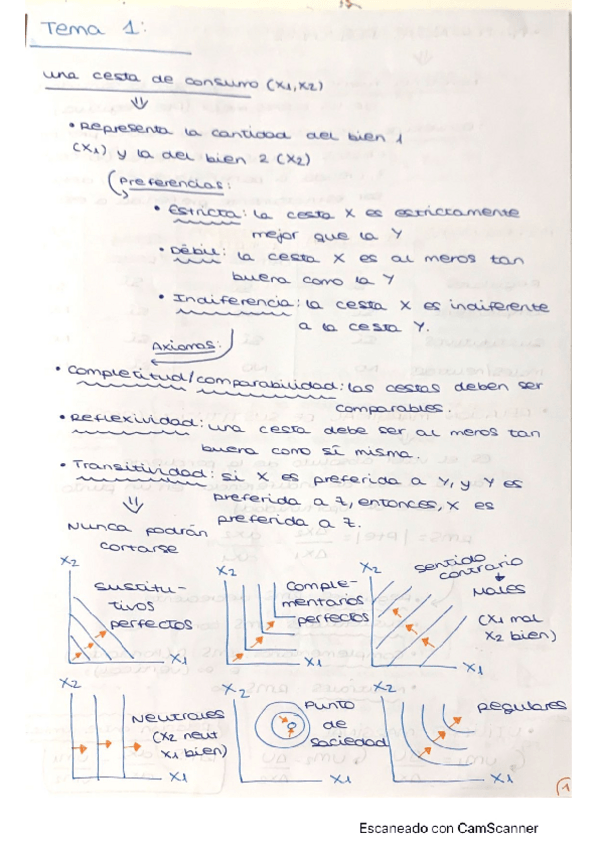 Tema 1:
una cesta de consumo (x1,x2)
⇓
• Representa la cantidad del bien 1
(x1) y la del bien 2 (x2)
Preferencias:
• Estricta: la cesta X es estrictamente
mejor que la Y
• Débil: la cesta X es al menos tan
buena como la Y
• Indiferencia: la cesta X es indiferente
a la cesta Y.
Axiomas:
• Completitud/comparabilidad: las cestas deben ser
comparables.
• Reflexividad: una cesta debe ser al menos tan
buena como sí misma.
• Transitividad: si X es preferida a Y, y Y es
preferida a Z, entonces, X es
preferida a Z.
⇓
Nunca podrán
cortarse
x2
sustitu-
tivos
perfectos
x1
x2
comple-
mentarios
perfectos
x1
x2
sentido
contrario
Males
(x1 mal
x2 bien)
x1
x2
Neutrales
(x2 neut
x1 bien)
x1
x2
Punto
de
saciedad
x1
x2
Regulares
x1
1
Escaneado con CamScanner